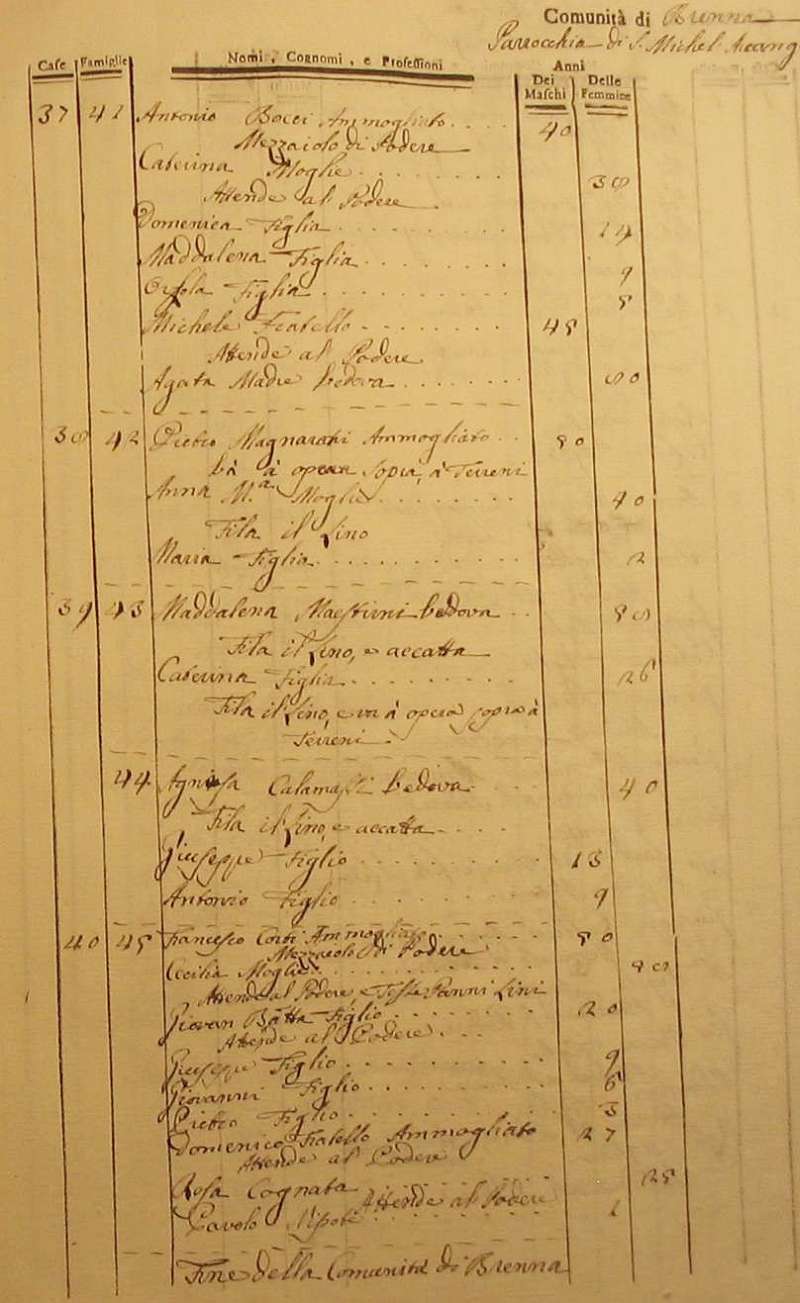 Comunità di Brenna
Parrocchia di S. Michel Arcang
Case Famiglie Nomi, Cognomi, e Professioni Anni
Dei Maschi Delle Femmine
37 41 Antonio Bocci Ammogliato 40
Mezzaiolo di Podere
Caterina Moglie 38
Attende al Podere
Domenica Figlia 14
Maddalena Figlia 9
Orsola Figlia 5
Michele Fratello 45
Attende al Podere
Agata Madre Vedova 80
38 42 Pietro Magnarini Ammogliato 50
Và à opera sopra à Terreni
Anna M.a Moglie 40
Fila il Lino
Maria Figlia 12
39 43 Maddalena Vedova
Fila il Lino, e accatta
Caterina Figlia 26
Fila il Lino, e và à opera sopra à
Terreni
44 Agnesa Calamasti Vedova 40
Fila il Lino, e accatta
Giuseppe Figlio 13
Antonio Figlio 9
40 45 Francesco Conti Ammogliato 50
Mezzaiolo di Podere
Cecilia Moglie 48
Attende al Podere, e Tesse Panni Lini
Giovan Batta Figlio 20
Attende al Podere
Giuseppe Figlio 9
Giovanni Figlio 6
Pietro Figlio 3
Domenico Fratello Ammogliato 27
Attende al Podere
Rosa Cognata Attende al Podere 25
Pavolo Nipote 1
Fine della Comunità di Brenna